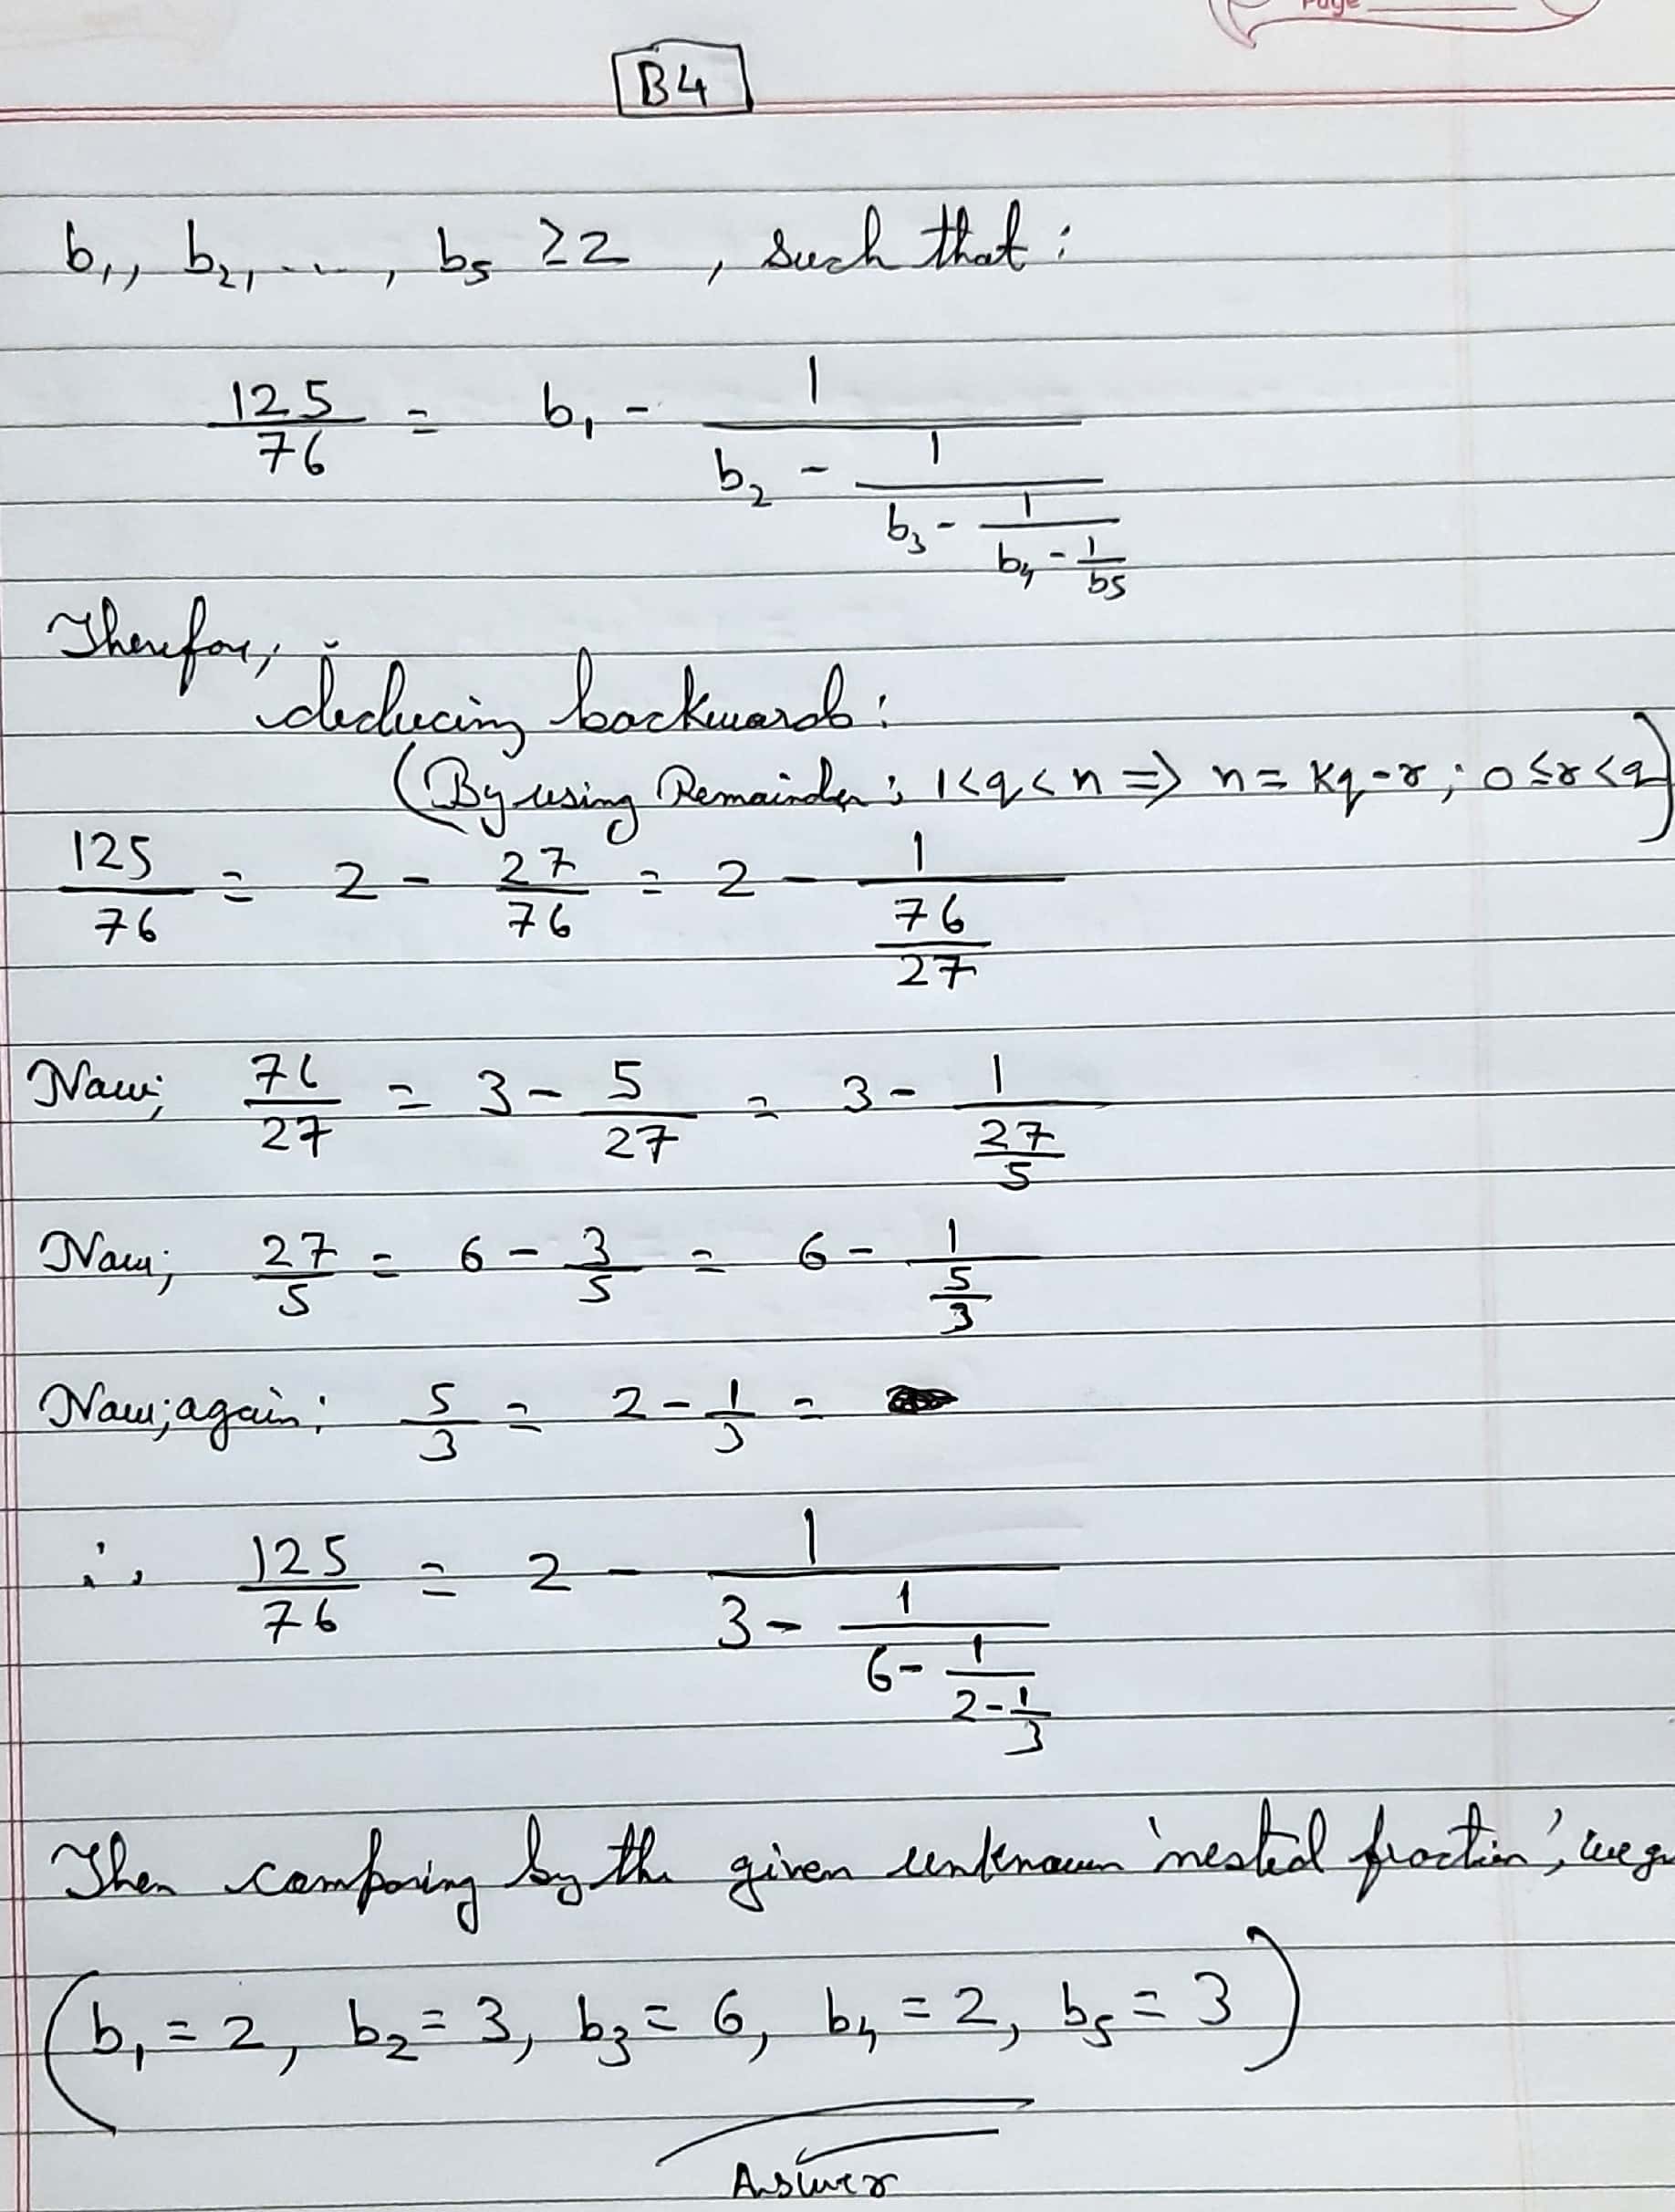 Page
B4
b₁, b₂, ..., b₅ ≥ 2, such that:
125/76 = b₁ - 1/(b₂ - 1/(b₃ - 1/(b₄ - 1/b₅)))
Therefore,
deducing backwards:
(By using Remainder; 1<q<n ⇒ n = kq-r; 0≤r<q)
125/76 = 2 - 27/76 = 2 - 1/(76/27)
Now; 76/27 = 3 - 5/27 = 3 - 1/(27/5)
Now; 27/5 = 6 - 3/5 = 6 - 1/(5/3)
Now; again; 5/3 = 2 - 1/3 =
∴ 125/76 = 2 - 1/(3 - 1/(6 - 1/(2 - 1/3)))
Then comparing by the given unknown 'nested fraction',
(b₁ = 2, b₂ = 3, b₃ = 6, b₄ = 2, b₅ = 3)
Answer